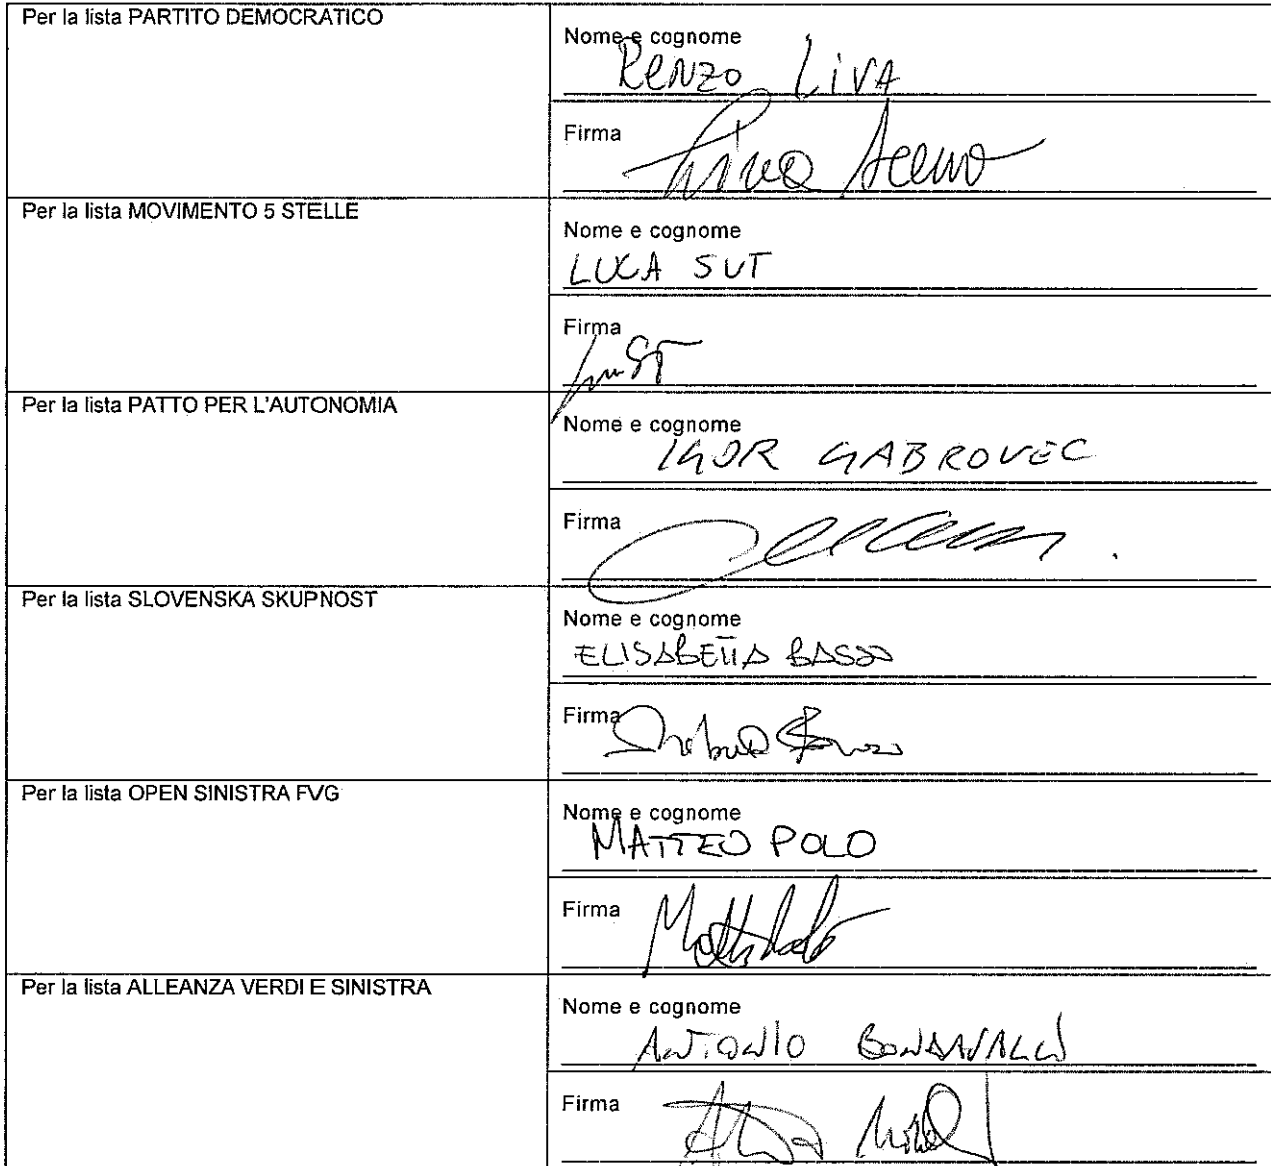 Per la lista PARTITO DEMOCRATICO
Nome e cognome
RENZO LIVA
Firma
Per la lista MOVIMENTO 5 STELLE
Nome e cognome
LUCA SUT
Firma
Per la lista PATTO PER L'AUTONOMIA
Nome e cognome
IGOR GABROVEC
Firma
Per la lista SLOVENSKA SKUPNOST
Nome e cognome
ELISABETTA BASSO
Firma
Per la lista OPEN SINISTRA FVG
Nome e cognome
MATTEO POLO
Firma
Per la lista ALLEANZA VERDI E SINISTRA
Nome e cognome
ANTONIO
Firma